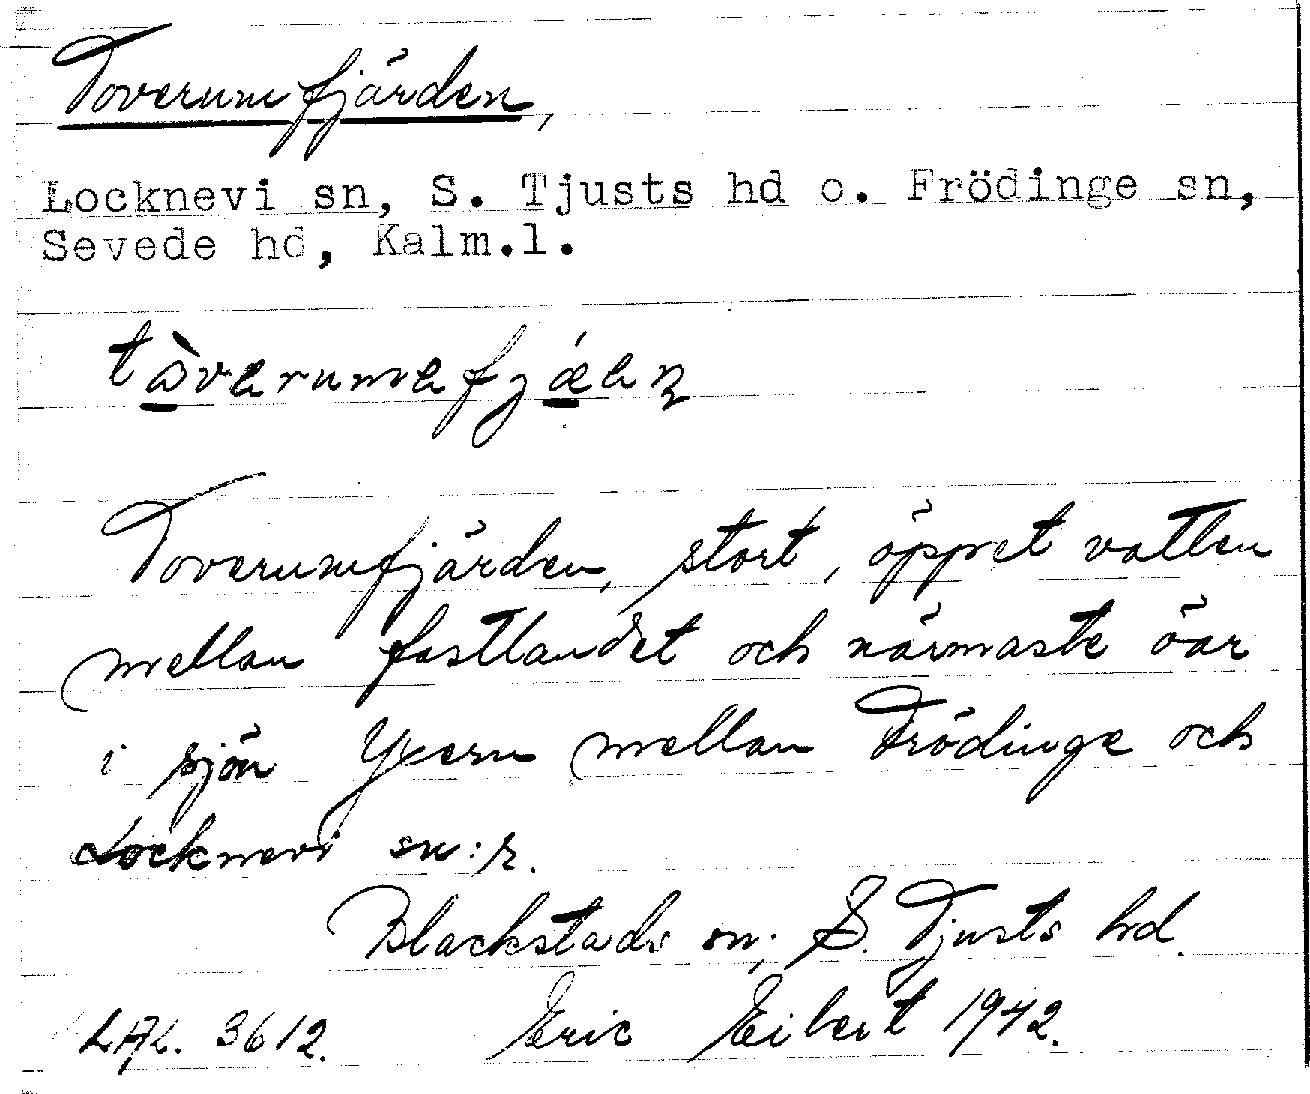 Toverumfjärden,
Locknevi sn, S. Tjusts hd o. Frödinge sn,
Sevede hd, Kalm.l.
Toverumfjärden, stort, öppet vatten
mellan fastlandet och närmaste öar
i sjön Yxern mellan Frödinge och
Locknevi sn:r.
Blackstads sn, S. Tjusts hd.
LAL. 3612. Eric Eibert 1942.